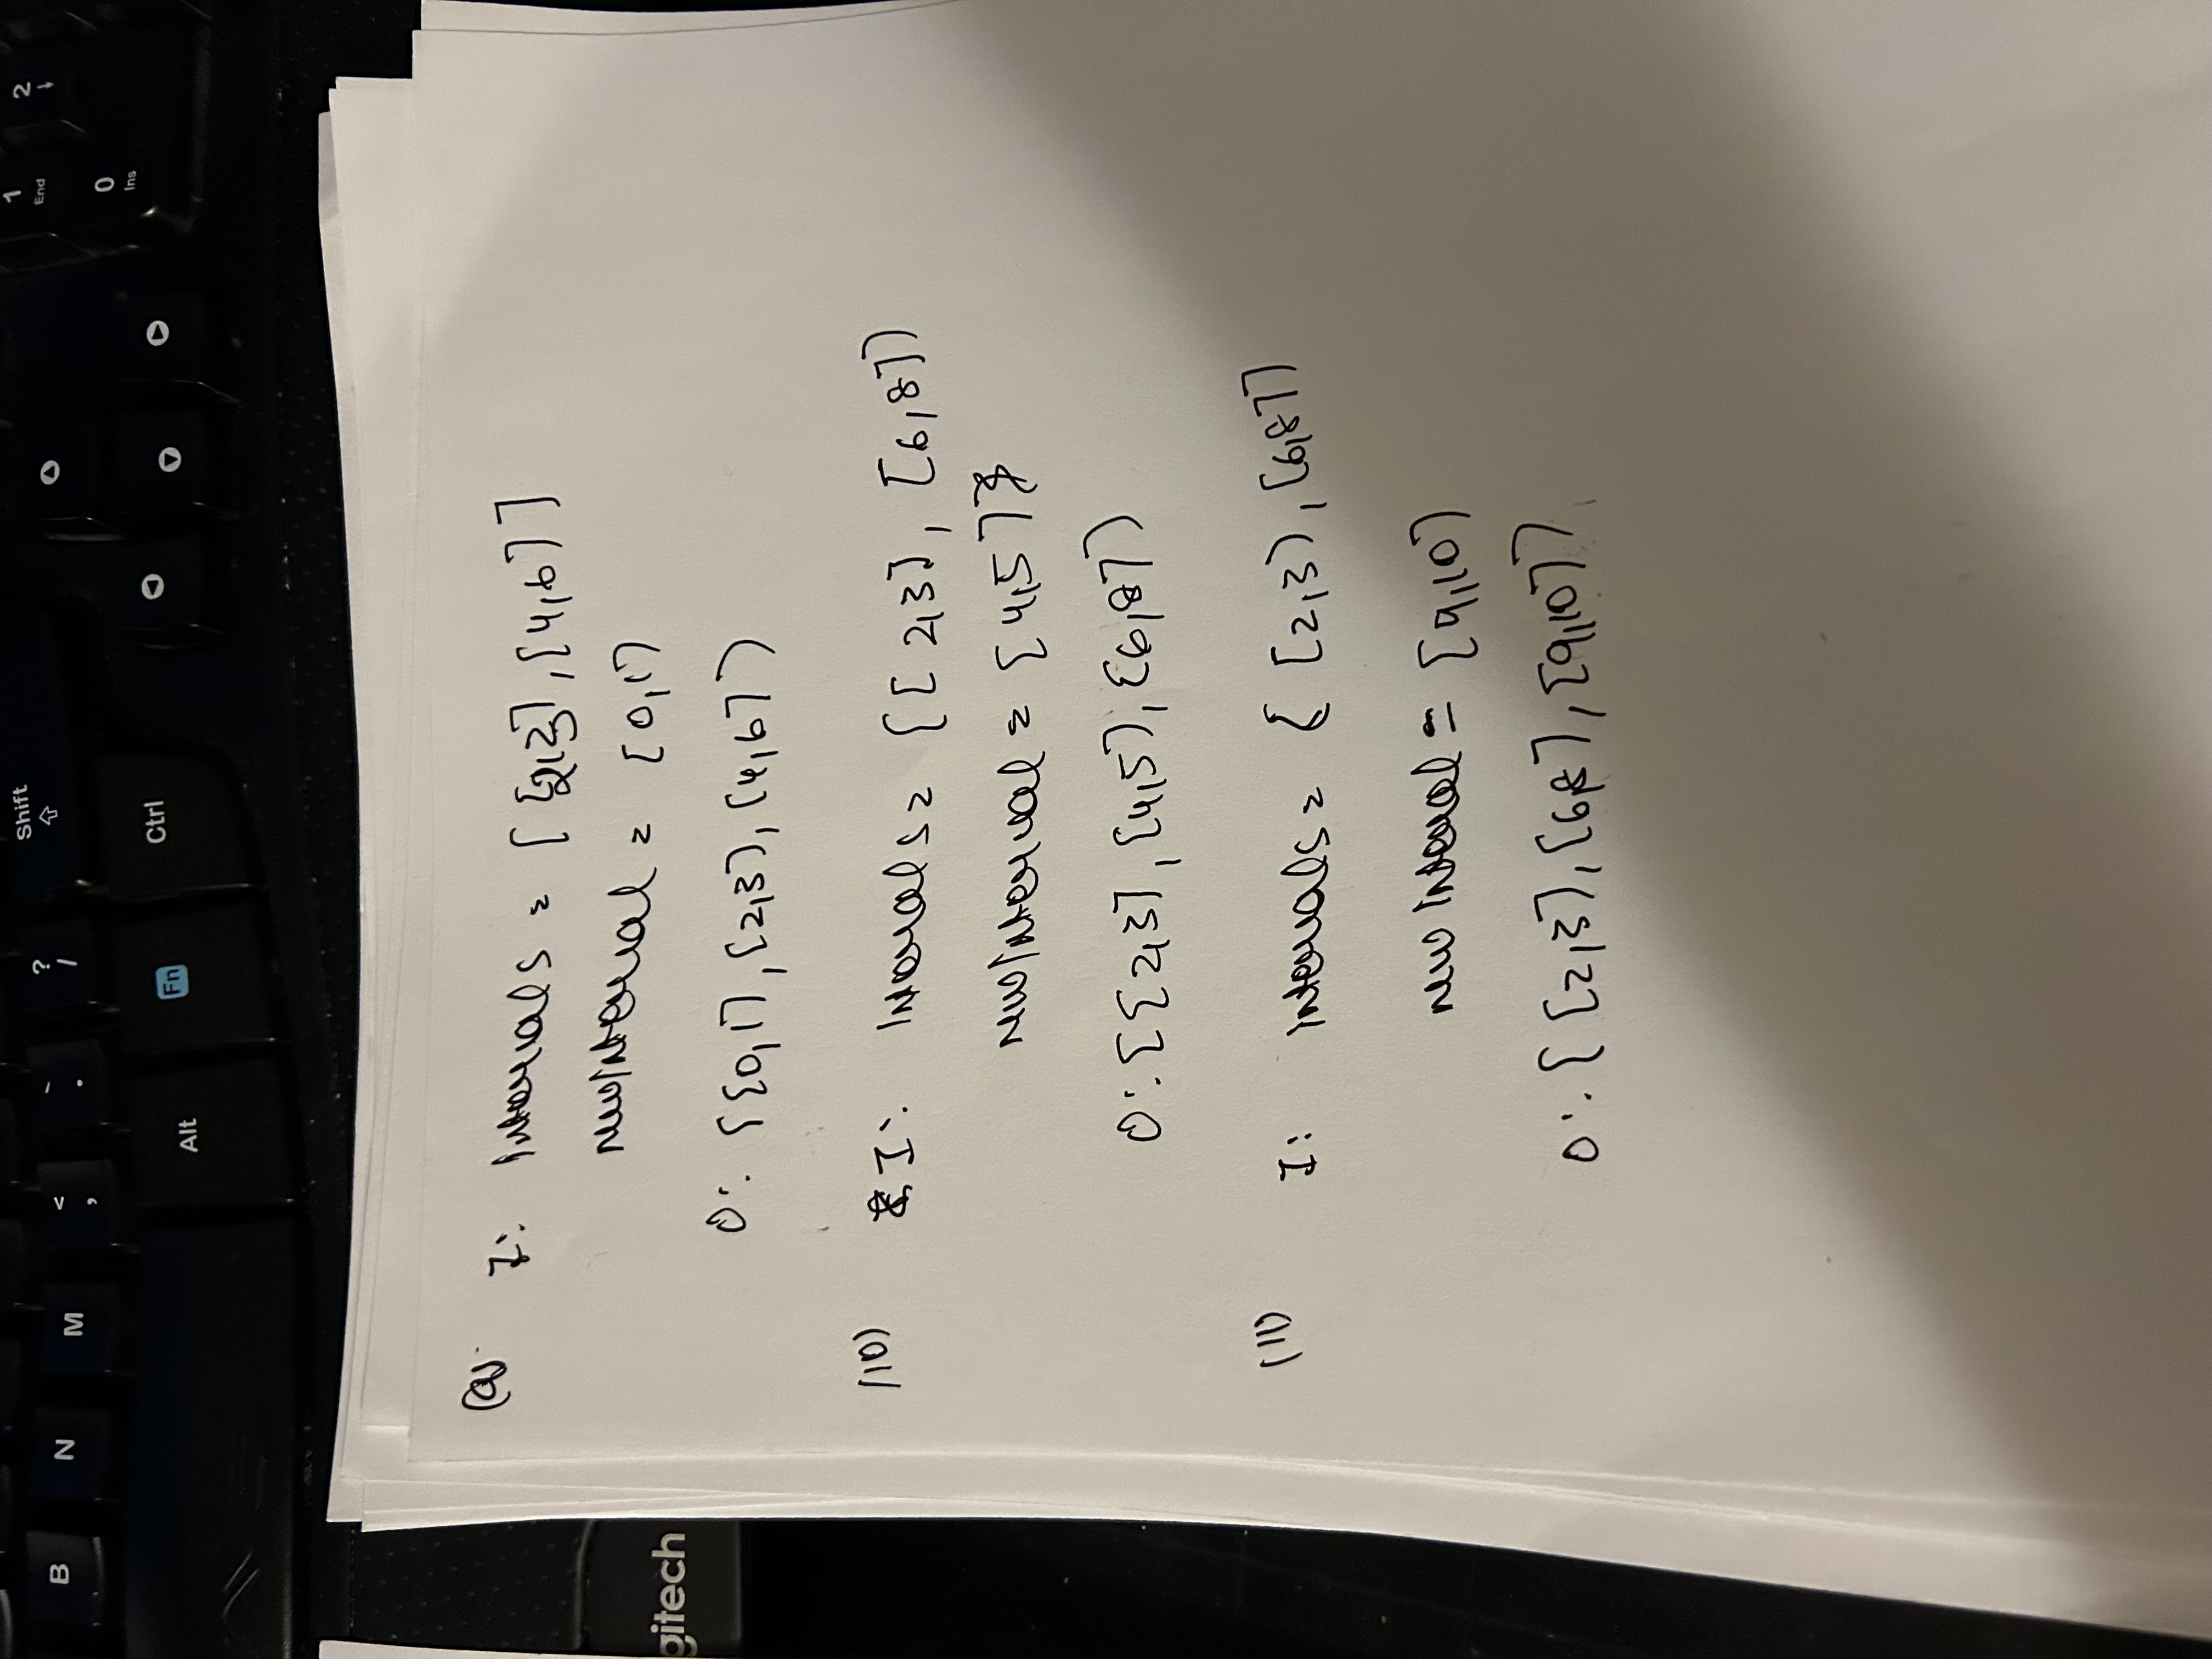 B N M < , - . ? / Shift 1 End 2
0 Ins
Alt Fn Ctrl
gitech
(9) I: Intervals = [ [2,3], [4,6] ]
newInterval = [0,1]
O: [[0,1], [2,3], [4,6]]
(10) I: Intervals = [[2,3], [6,8]]
newInterval = [4,5]
O: [[2,3], [4,5], [6,8]]
(11) I: intervals = [ [2,3], [6,8]]
new interval = [9,10]
O: [ [2,3], [6,8], [9,10]]